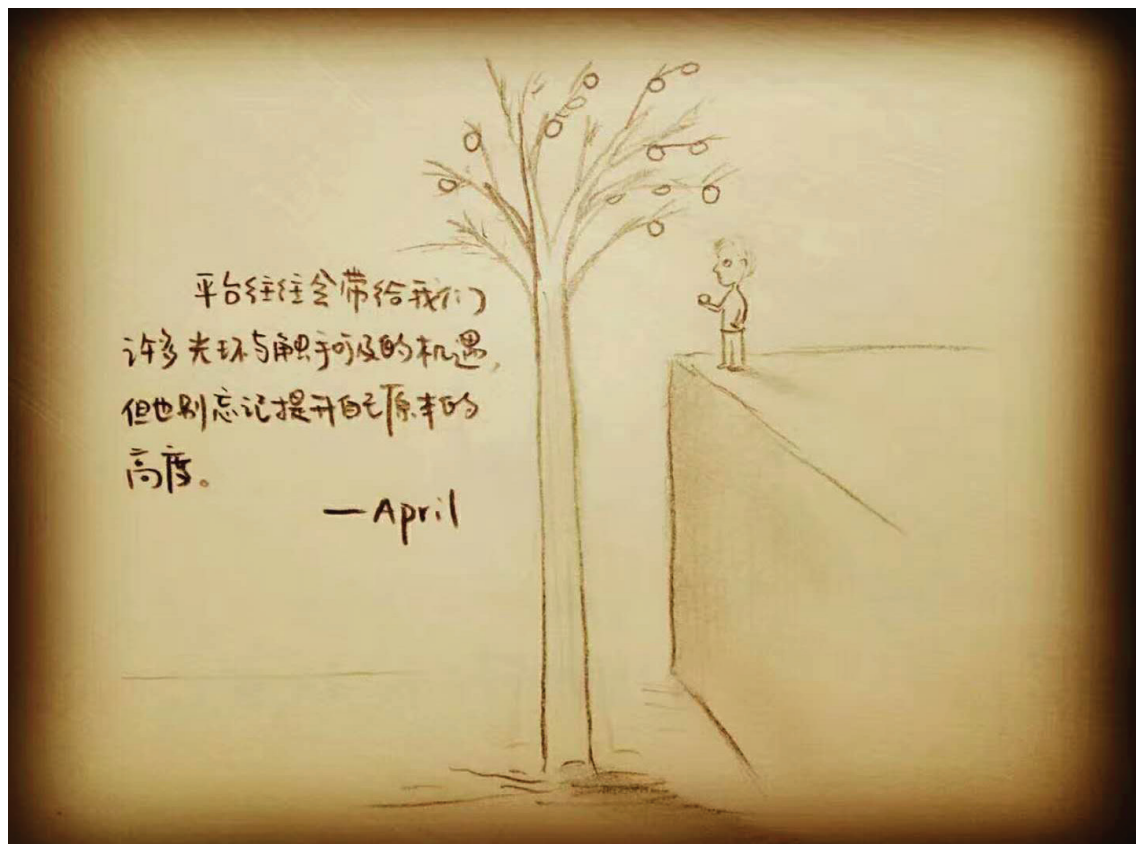 平台往往会带给我们
许多光环与触手可及的机遇,
但也别忘记提升自己原本的
高度。
—April